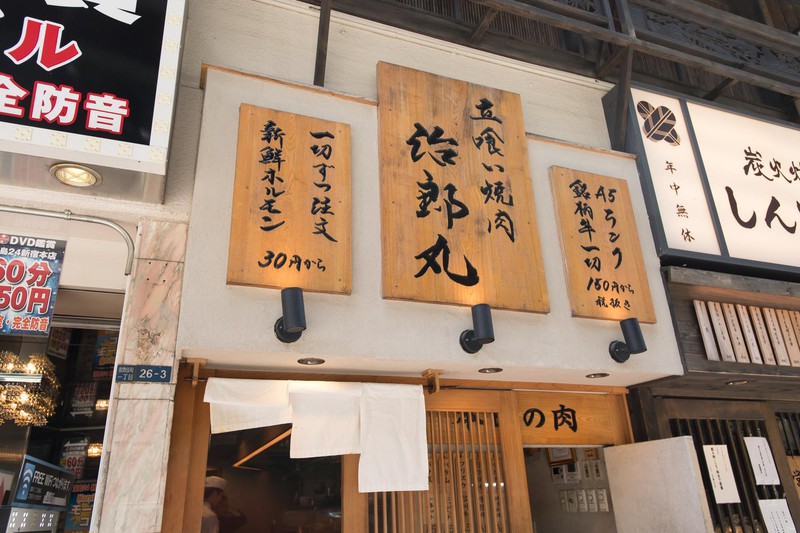 ル
全防音
DVD鑑賞
島24新宿本店
60分
50円
完全防音
26-3
FREE WiFi
新鮮ホルモン
一切ずつ注文
30円から
立喰い焼肉
治郎丸
A5ランク
銘柄牛一切
150円から
税抜き
の肉
年中無休
炭火焼
しん